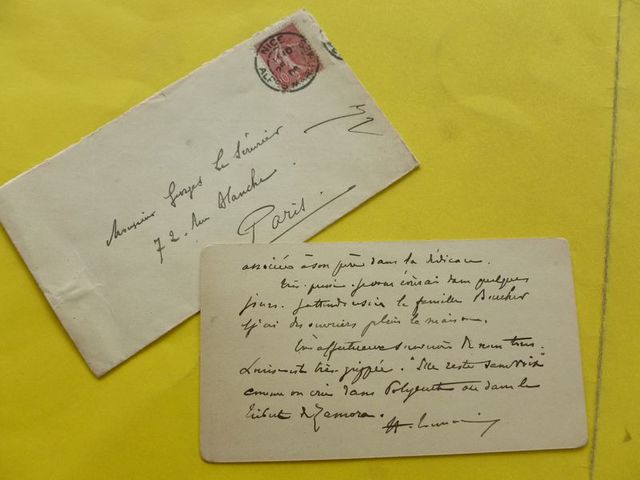 NICE
ALPES
Monsieur Georges Le Sérurier
72. Rue Blanche
Paris.
associées à son père dans la dédicace.
Très pressé. Je vous écrirai dans quelques
jours. J'attends ici la famille Boucher
& j'ai des ouvriers plein la maison.
Très affectueux souvenirs de nous tous.
Louise est très grippée. "Elle reste sans voix"
comme on crie dans Polyeucte ou dans le
Tribut de Zamora.